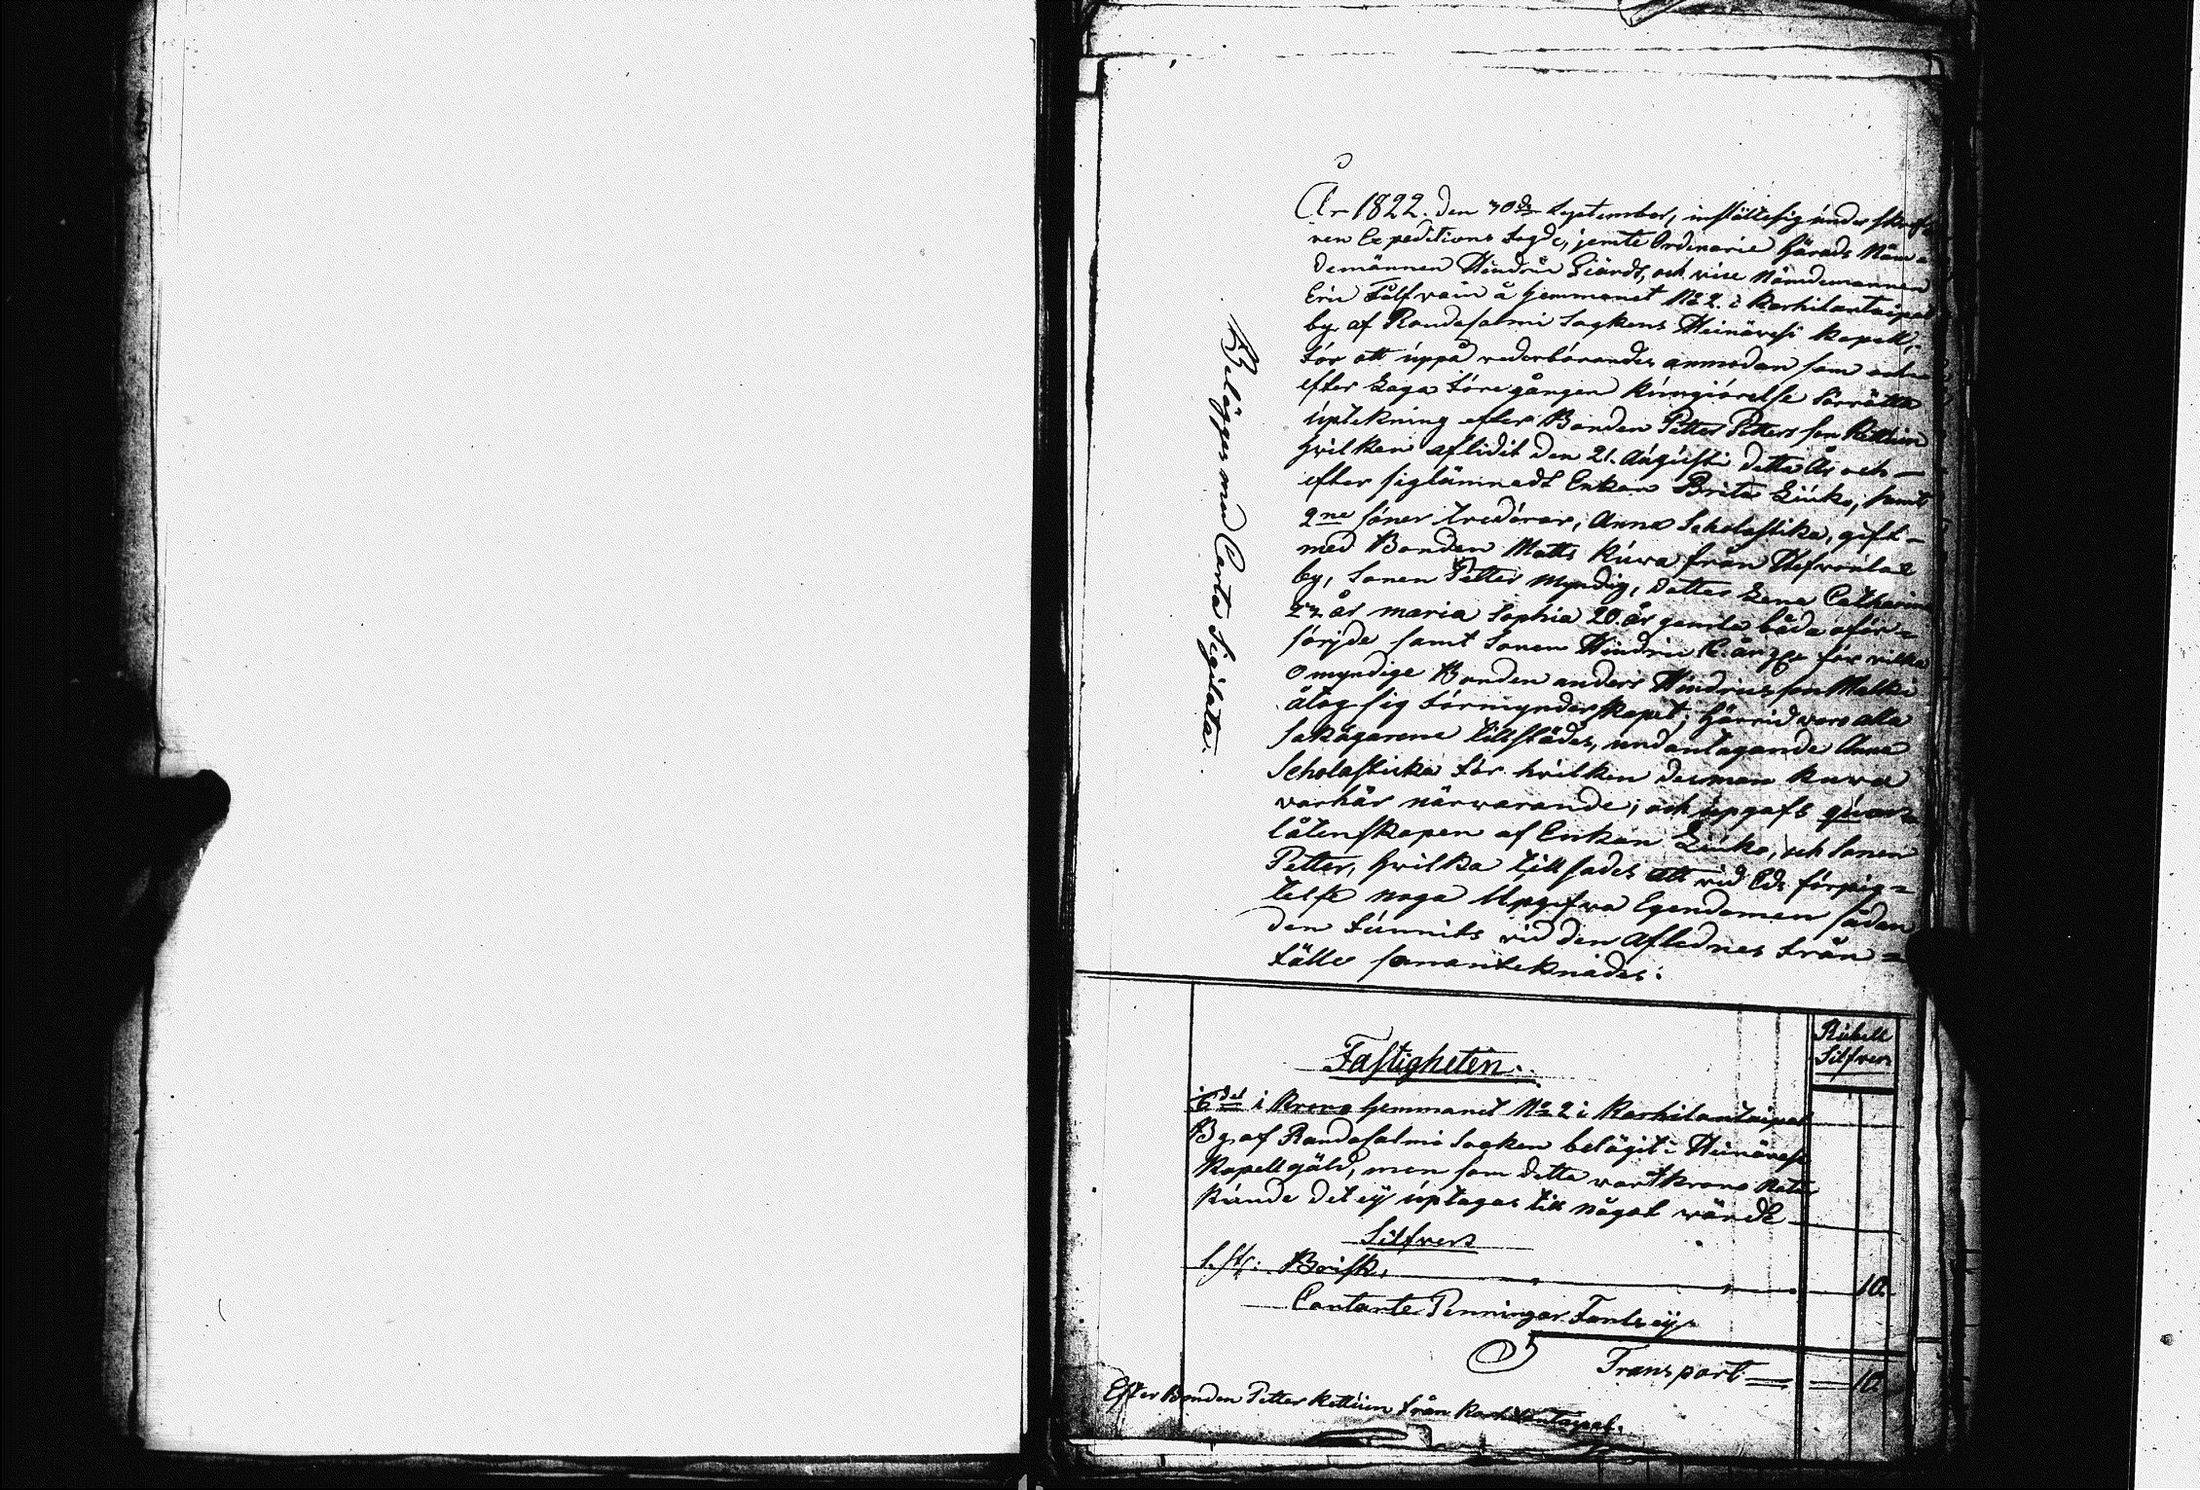 År 1822. den 30de September, instältesig underskref=
ven Expeditions Fogde, jemte Ordinarie Härads Näm=
demännen Hindric Giärdt, och vice Nämdemannen
Eric Tålfvain å Hemmanet No 2. i Karhilantaipal
by af Randasalmi Sockens Heinävesi Kapell,
för att uppå vederbörandes anmodan som och
efter Laga föregången Kungiörelse förrätta
úptekning efter Bonden Petter Petters son Kettúin
hvilken aflidit den 21. Augústi detta År och
efter siglämnadt Enkan Brita Liúko, samt
2ne söner tredötrar, Anna Scholastika, gift
med Bonden Matts Kúwa från
by, Sonen Petter Myndig, Dotter Lena Catharina
år Maria Sophia 20. år gamla båda oför=
sörjde samt Sonen Hindric för vilka
omyndige Bonden Anders Hindricsson Malki
åtog sig Förmynderskapet; härvid voro alla
sakägarene tillstädes, undantagande Anna
Scholasticka för hvilken desman Kuwa
varhär närwarande; och úpgafs qúar=
låtenskapen af Enkan Liúko, och Sonen
Petter, hvilka tillsades att vid Eds förpig=
telse noga Upgifwa Egendomen sådan
den fúnnits vid den Aflednes från=
fälle samanteknades:
Belägges med Carta Sigilata.
Rúbell
Silfver
Fastigheten.
del i Krono Hemmanet No 2 i Karhilantaipal
By af Randasalmi Socken belägit i Heinävesi
Kapellgäld, men som detta vart Krono
kúnde det ey úptagas till något wärde
Silfver
1. St: Brisk, 10.
Contante Penningar Fants ey.
Transport 10.
Efter Bonden Petter Kettúin från Karhilantaipal.